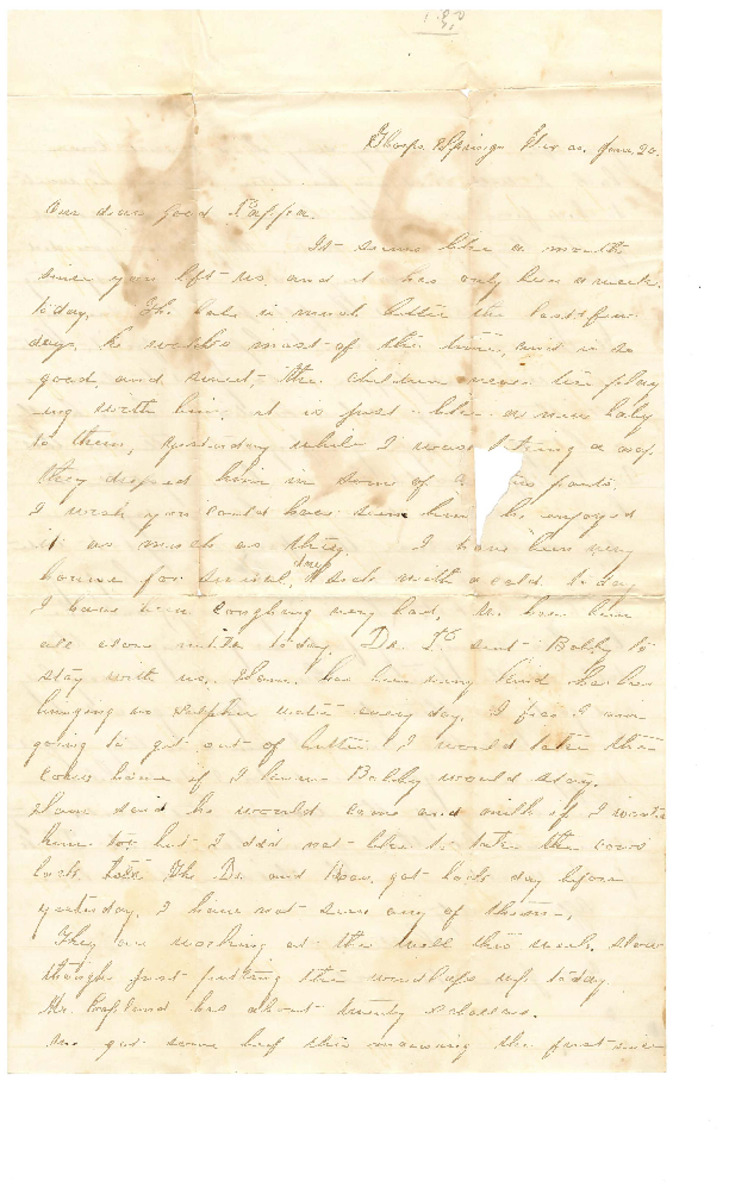 Thorps Springs Texas. Jan. 20.
Our dear good Pappa.
It seems like a month
since you left us, and it has only been a week
today. The babe is much better the last few
days, he wakes most of the time, and is so
good, and sweet, the children never tire play
-ing with him, it is just like a new baby
to them, yesterday while I was t ing a nap
they dressed him in some of pants.
I wish you could have seen him he enjoyed
it as much as they. I have been very
for several days, sick with a cold. to day
I have been coughing very bad, We have been
all alone until today, Dr. sent Bobby to
stay with us, Sam. has been very kind he has
bringing us sulphur water every day, I I am
going to get out of butter. I would take the
cows home if I knew Bobby would stay.
Sam said he would come and milk if I wanted
him to, but I did not like to take the cows
back, The Dr. and got back day before
yesterday, I have not seen any of them.
They are working at the well this week, slow
though just putting the windlass up today
Mr. has about twenty scholars.
We got some beef this morning the first since